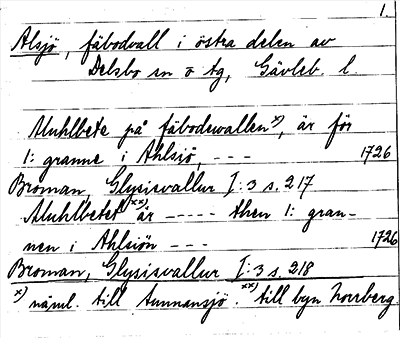 1.
Alsjö, fäbodvall i östra delen av
Delsbo sn o tg, Gävleb. l.
Muhlbete på fäbodewallen x), är för
1: granne i Ahlsjö, --- 1726
Broman, Glysisvallur I:3 s. 217
Muhlbetet xx) är ----- then 1: gran-
nen i Ahlsiön --- 1726
Broman, Glysisvallur I:3 s. 218
x) näml. till Annansjö. xx) till byn Norrberg.